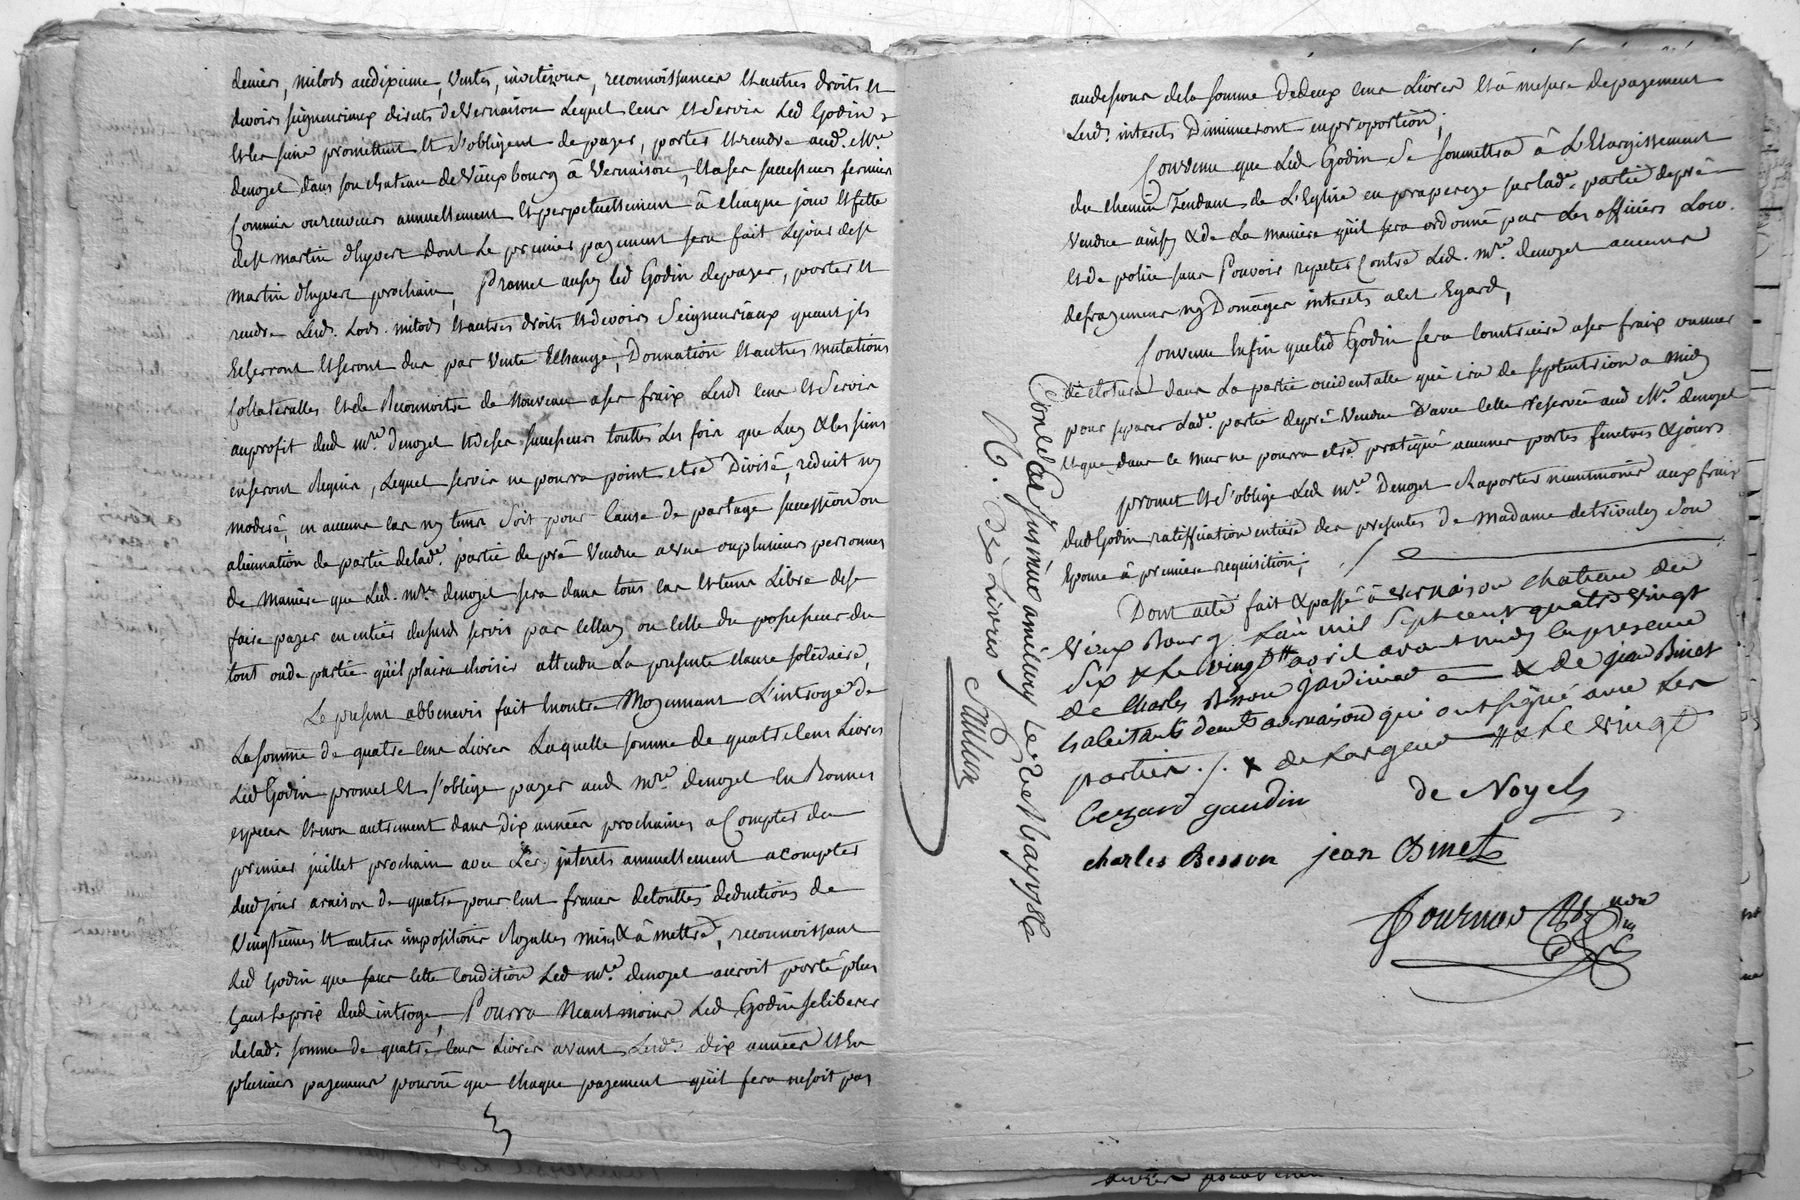 deniers, milods audixieme, Ventes, investizons, reconnoissances et autres droits et
devoirs seigneuriaux directs de Vernaison Lequel cens et Servis Led Godin &
et les siens promettent et s'obligent de payer, porter et rendre aud.t Mre
denoyel dans son chateau de Vieuxbourg à Vernaison, et a ses successeurs fermiers
Commis ou receveurs annuellement et perpetuellement à chaque jour et fette
de st martin dhyvert dont le premier payement sera fait Le jour de st
martin dhyvert prochain, Promet aussy led Godin de payer, porter et
rendre Lesd. Lods. milods et autres droits et devoirs Seigneuriaux quant jls
Echerront et seront dus par Vente Echange, Donnation et autres mutations
Collateralles et de Reconnoitre de Nouveau a ses fraix Lesds cens et Servis
au profit dud mre denoyel et de ses successeurs touttes Les fois que Luy & les siens
en seront Requis, Lequel servis ne pourra point etre Divisé, reduit ny
moderé, en aucuns cas ny tems Soit pour Cause de partage succession ou
aliennation de partie de lade. partie de pré Vendue a une ou plusieurs personnes
de Maniere que Led. mre. denoyel sera dans tous cas et tems Libre de se
faire payer en entier dusurd servis par celluy ou celle du possesseur du
tout ou de partie qu'il plaira choisir attendu La presente clause solidaire,
Le present abbenevis fait En outre Moyennant L'introge de
La somme de quatre cens Livres Laquelle somme de quatre cens Livres
Led Godin promet et s'oblige payer aud mre denoyel En Bonnes
especes et non autrement dans Dix années prochaines a Compter du
premier juillet prochain avec Les jnterets annuellement a compter
dud jour a raison de quatre pour cent francs de touttes deductions de
Vingtiemes et autres impositions Royalles mises & à mettre, reconnoissant
Led Godin que sans cette condition Led mre. denoyel auroit porté plus
haut Le prix dud introge, Pourra Neantmoins Led Godin se liberer
de lade. somme de quatre cens Livres avant Lesde. dix années et En
plusieurs payemens pourvu que chaque payement qu'il fera ne soit pas
au dessous de la somme De deux cens Livres et à mesure de payement
Lesds. interets Diminueront en proportion;
Convenu que Led Godin Se soumettra à L'Elargissement
du chemin Tendant de L'Eglise en sur lade. partie de pré
Vendue ainsy & de La maniere qu'il sera ordonné par Les officiers
et de police sans Pouvoir repeter Contre Led. mre. denoyel aucuns
defrayemens ny Domages interets a cet Egard,
Convenu Enfin que led Godin fera Construire a ses fraix un mur
de cloture dans La partie occidentalle qui ira de septentrion a midy
pour separer Lade. partie de pré Vendue D'avec celle reservée aud Mre. denoyel
et que dans le mur ne pourra etre pratiqué aucunes portes fenetres & jours
promet et s'oblige Led mre. Denoyel Raporter neantmoins aux fraix
dud Godin ratiffication entiere des presentes de Madame de trivouley Son
Epouse à premiere requisition;
Dont acte fait & passé à Vernaison chateau de
Vieux Bourg Lan mil Sept cent quatre Vingt
Six & Le vingt # avril avant midy En presence
de Charles Besson jardinier x & de jean Binet
habitants de Vernaison qui ont signé avec Les
parties ./. x de Largent # & Le Vingt
Cezard gaudin
de Noyel
charles Besson
jean Binet
Fournas
Conlle Insinué a millery Le 1786
R. Livres